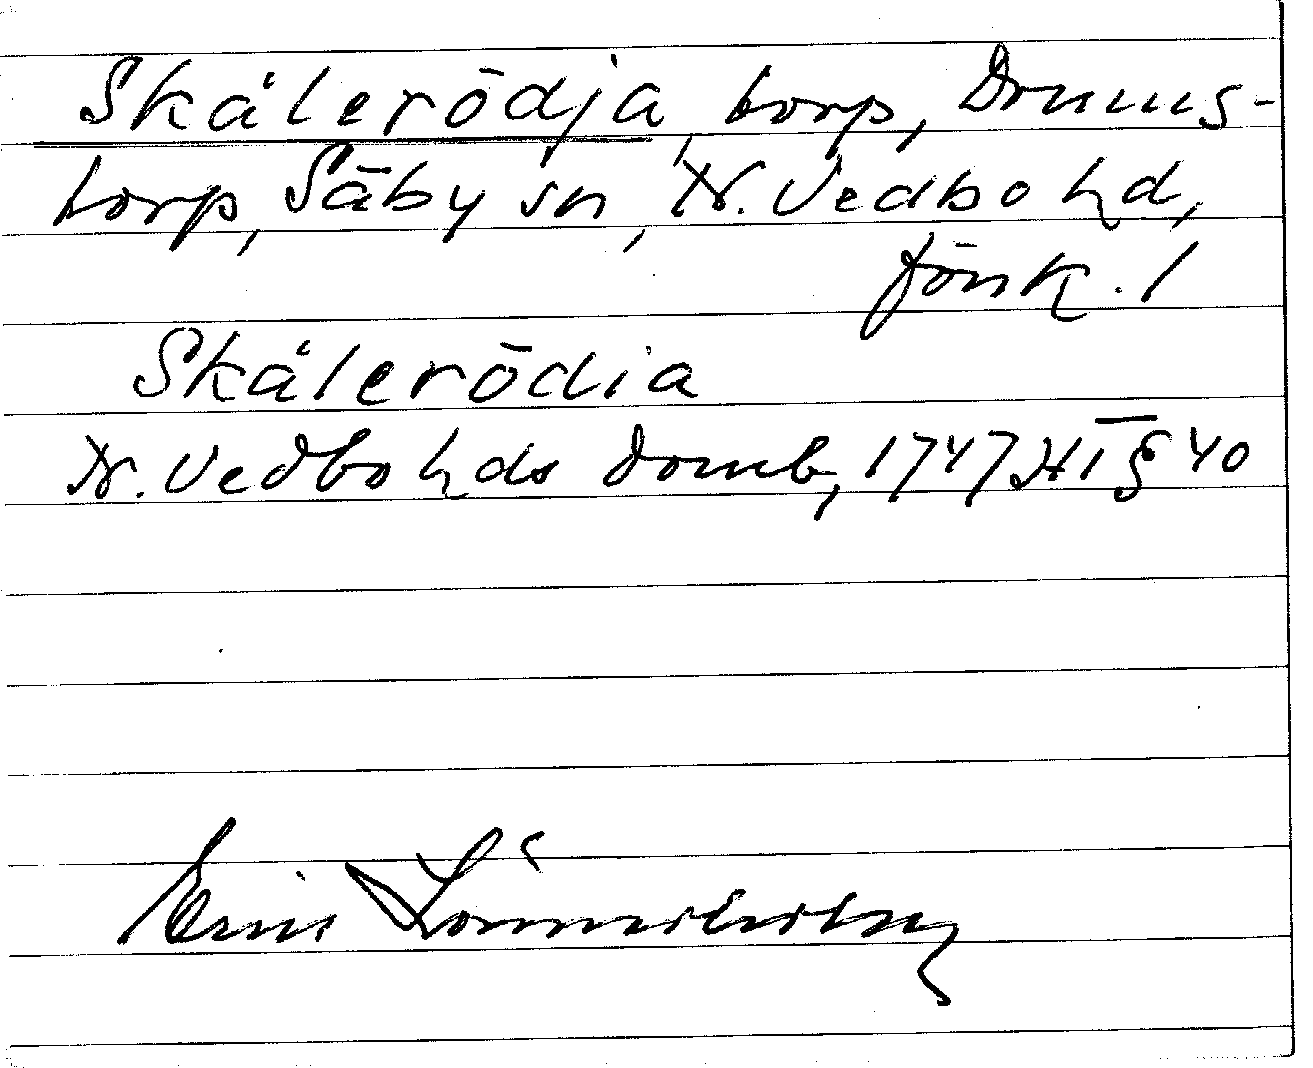 Skålerödja, torp, Drums-
torp, Säby sn, N. Vedbo hd,
Jönk. l
Skålerödia
N. Vedbo hds domb, 1747 HT § 40